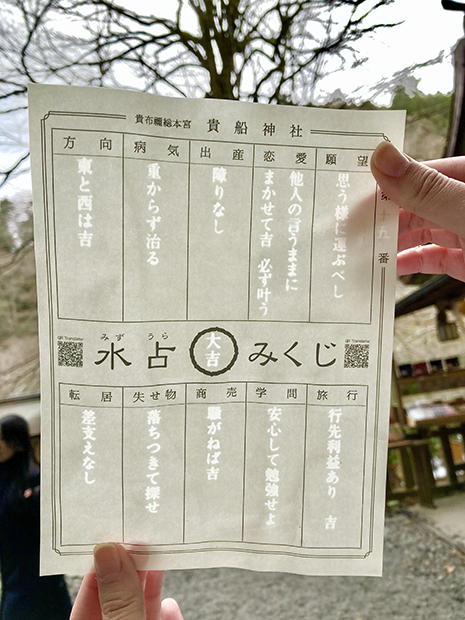 貴布禰総本宮 貴船神社
第十五番
願望
思う様に運ぶべし
恋愛
他人の言うままに
まかせて吉 必ず叶う
出産
障りなし
病気
重からず治る
方向
東と西は吉
QR Translator
みず うら
水占
大吉
みくじ
QR Translator
旅行
行先利益あり 吉
学問
安心して勉強せよ
商売
騒がねば吉
失せ物
落ちつきて探せ
転居
差支えなし